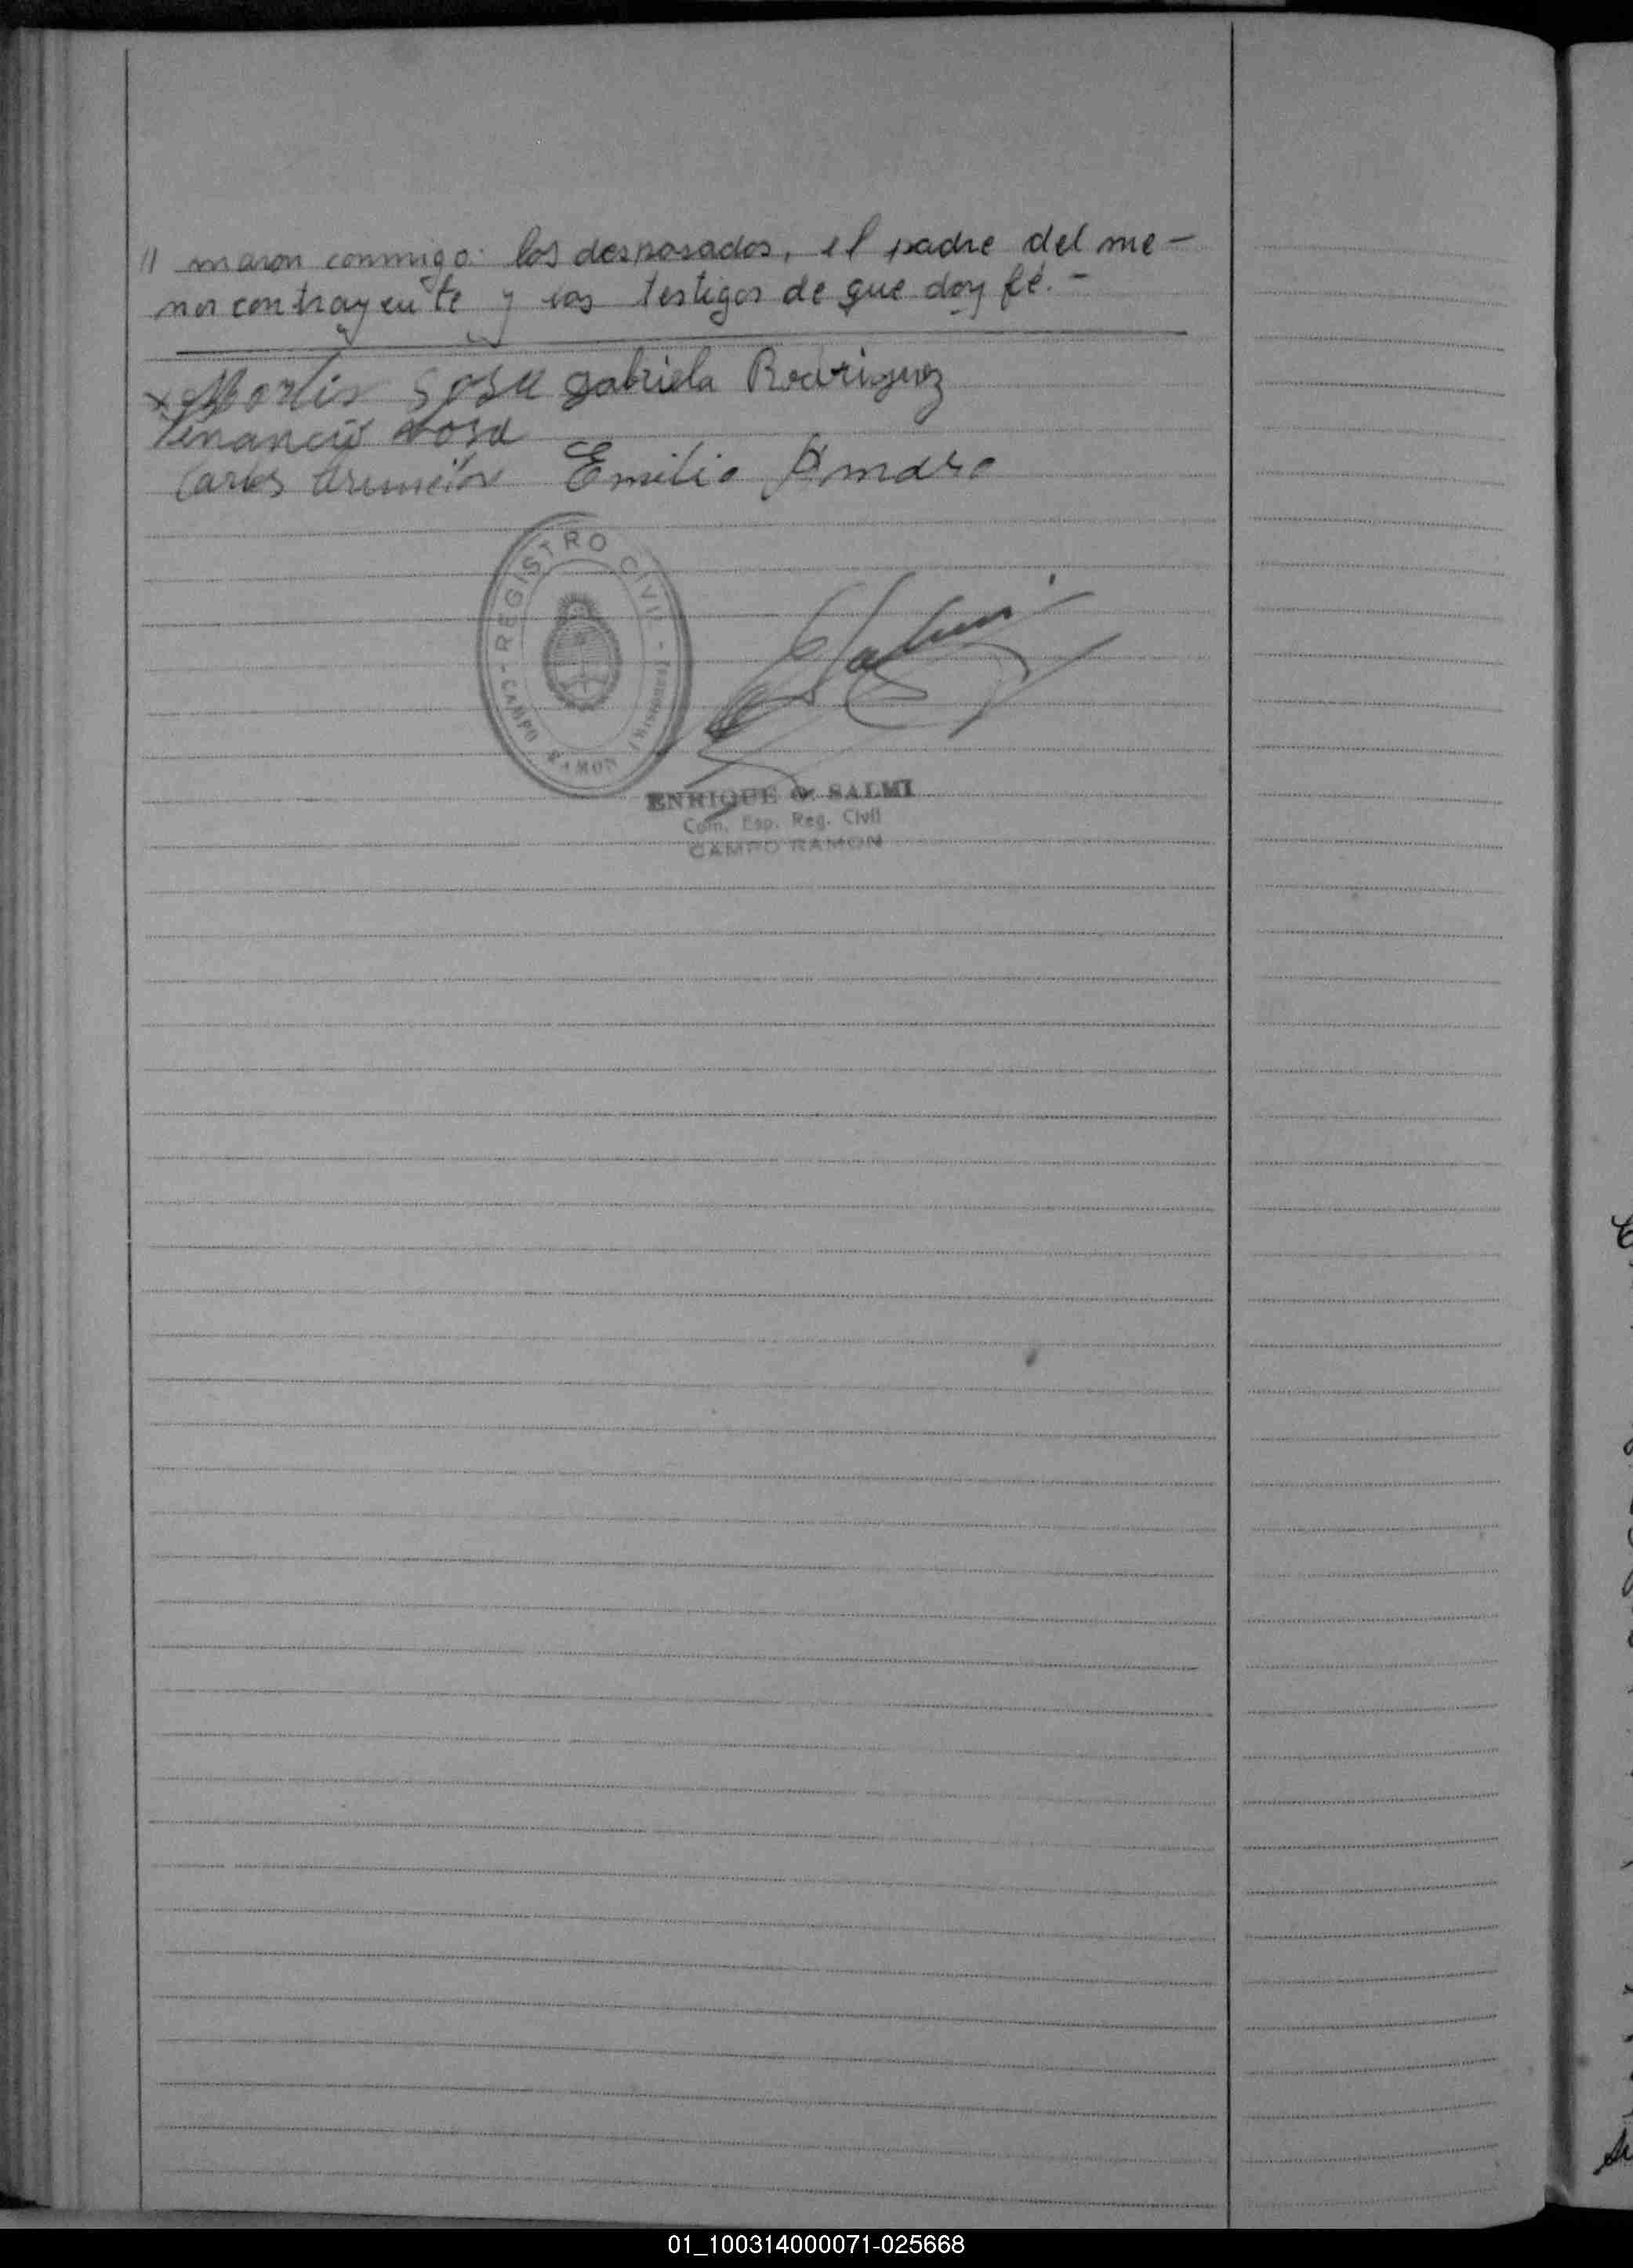 // maron conmigo: los desposados, el padre del me-
nor contrayente y los testigos de que doy fé.-
x Martin Sosa Gabriela Rodriguez
Venancio Sosa
Carlos Emilio Amaro
- REGISTRO CIVIL - (MISIONES)
- CAMPO RAMON
ENRIQUE SALMI
Com. Esp. Reg. Civil
CAMPO RAMON
01_100314000071-025668